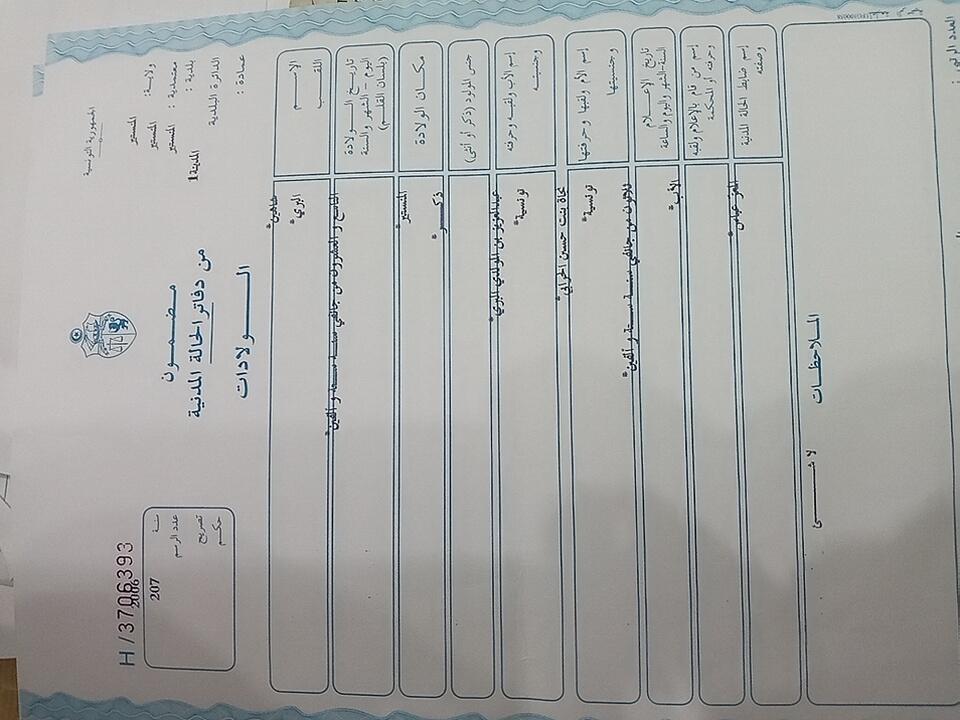 الجمهورية التونسية
ولاية: المنستير
معتمدية: المنستير
بلدية: المنستير
الدائرة البلدية
المدينة1
عمادة:
H/3706393
سنة 2006
عدد الرسم 207
تصريح
حكم
مضمون
من دفاتر الحالة المدنية
الولادات
الاسم
اللقب
شاهين*
البري*
تاريخ الولادة
(اليوم - الشهر والسنة
(بلسان القلم)
التاسع و العشرون من جانفي سنة ستة و ألفين*
مكان الولادة
المنستير*
جنس المولود (ذكر أو أنثى)
ذكر*
إسم الأب ولقبه وحرفته
وجنسيته
عبدالعزيز بن المولدي البري*
تونسية*
إسم الأم ولقبها وحرفتها
وجنسيتها
نجاة بنت حسين الحرابي*
تونسية*
تاريخ الإعلام
السنة-الشهر واليوم والساعة
ثلاثون من جانفي سنة ستة و ألفين*
إسم من قام بالإعلام ولقبه
وحرفته أو المحكمة
الأب*
إسم ضابط الحالة المدنية
وصفته
المعز عباس*
الملاحظات
لا شيء
العدد الرتبي: